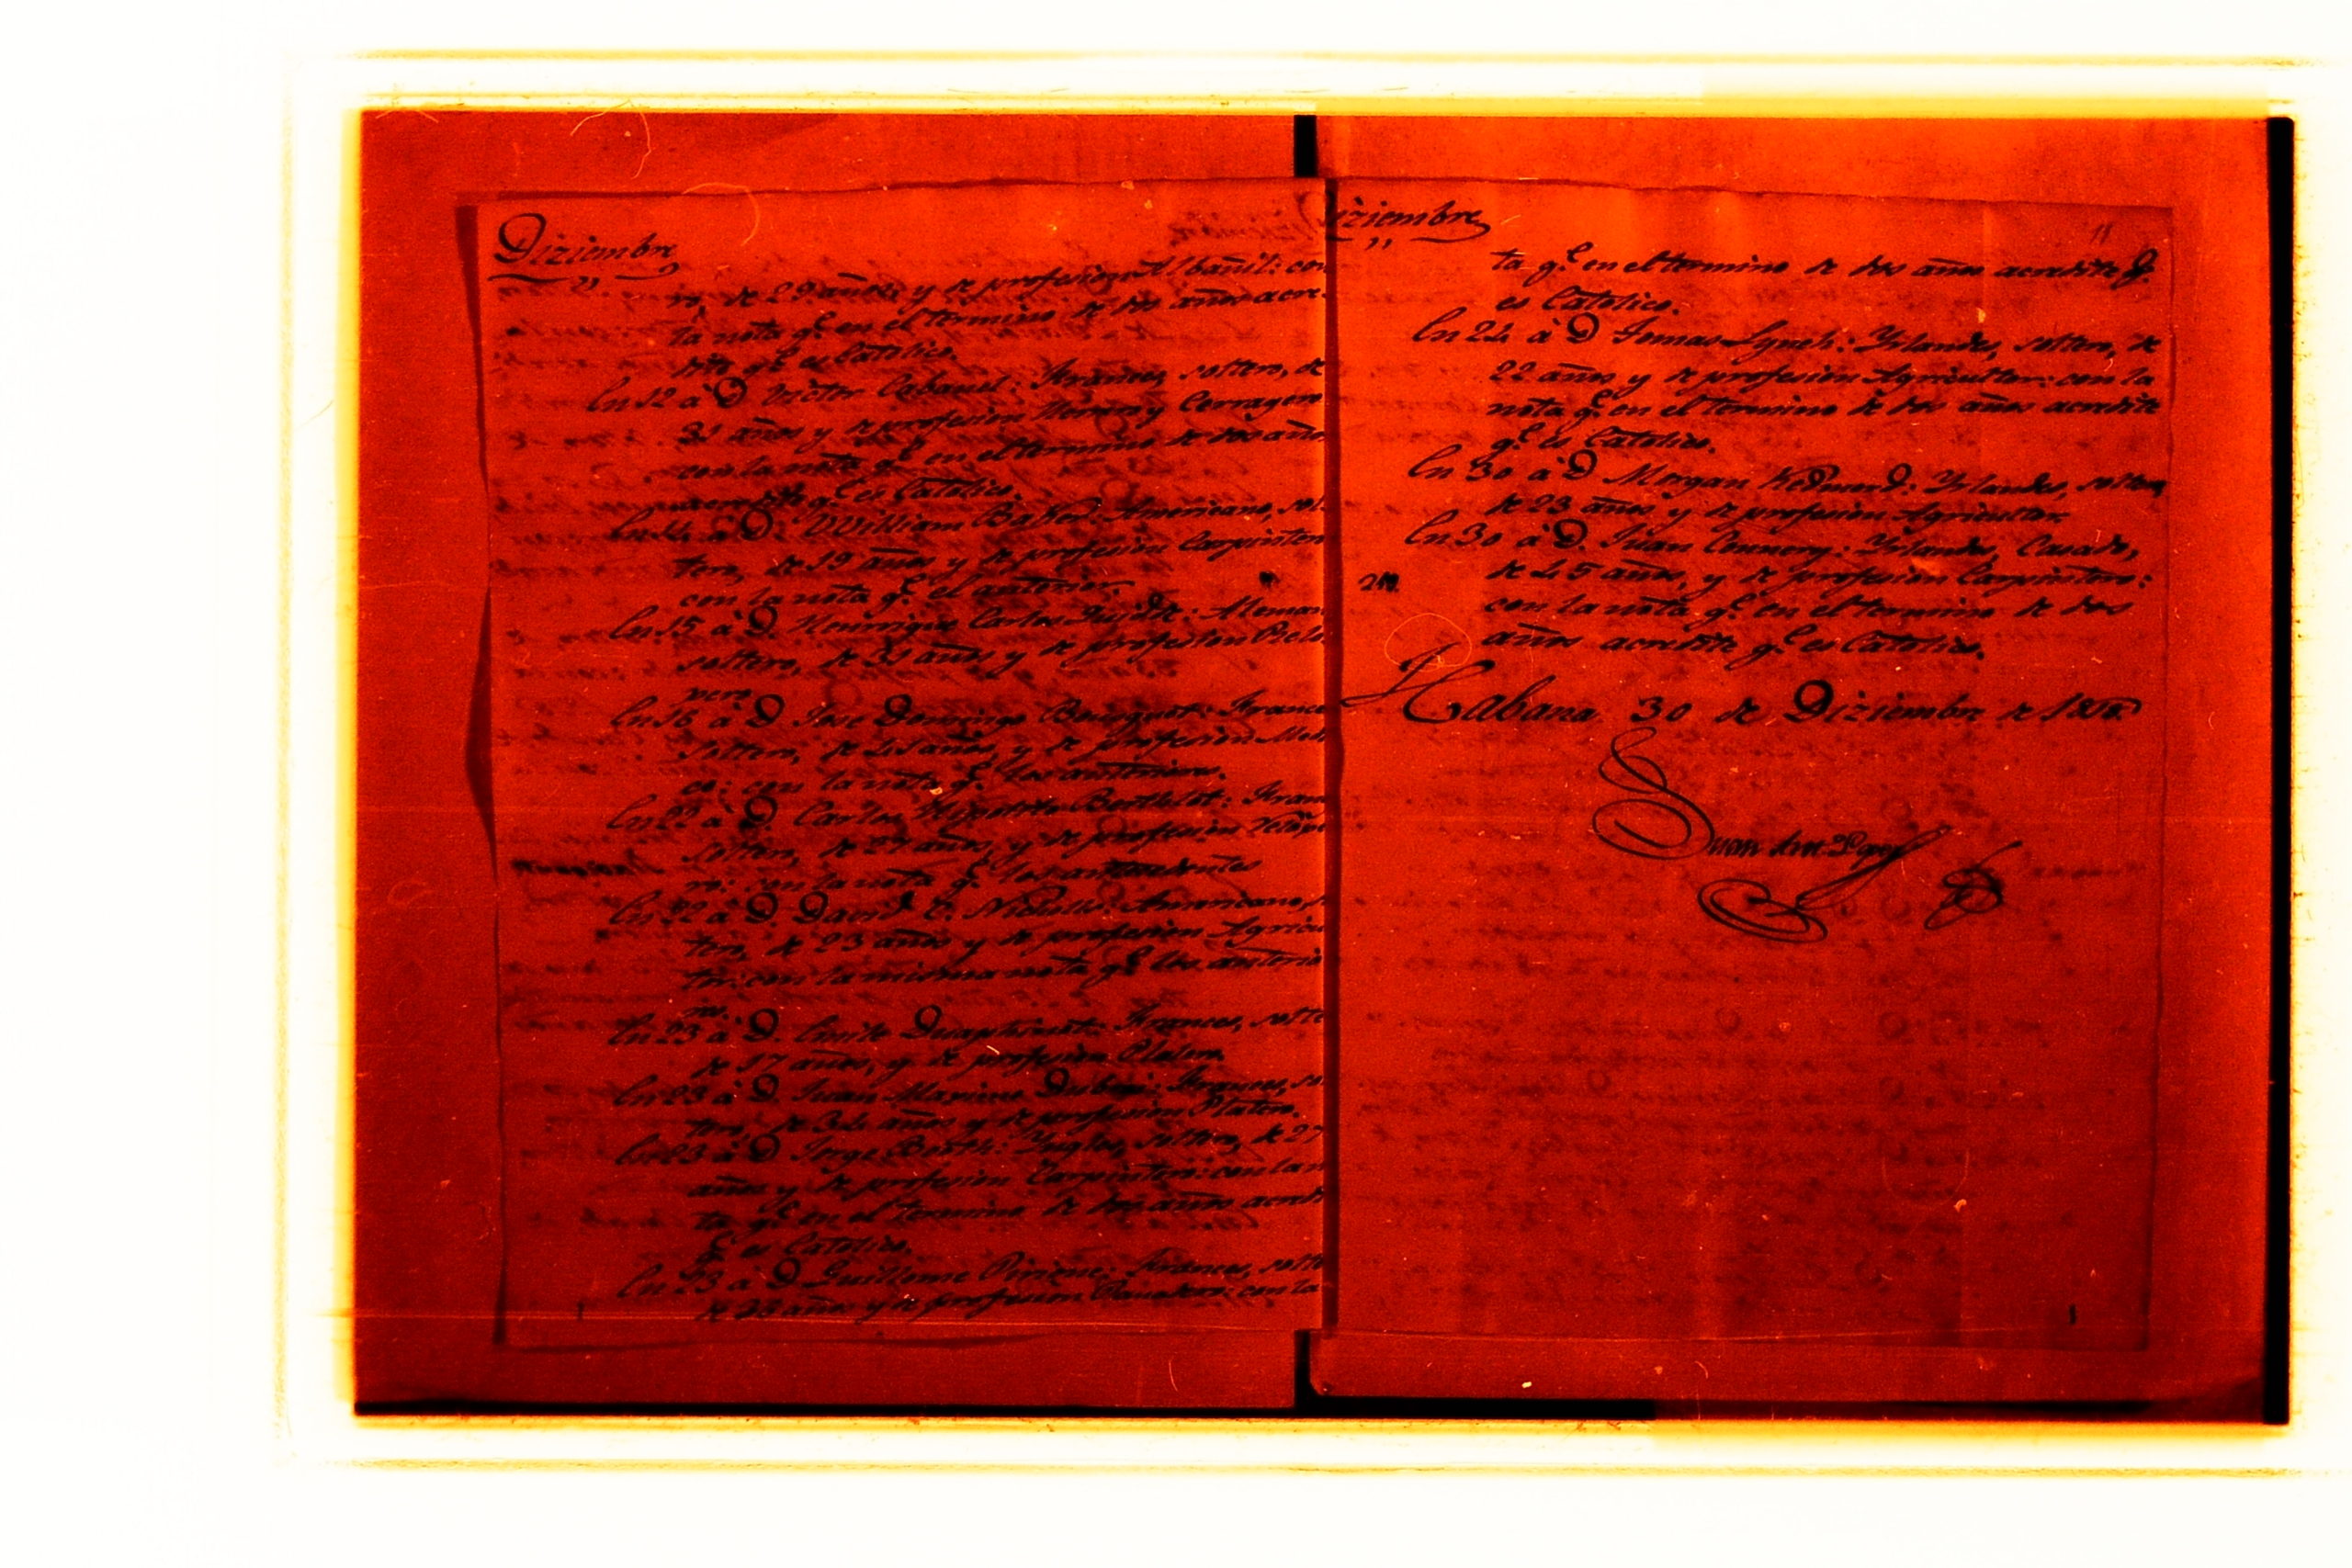 Diziembre
ro, de 29 años y de profesion Albañil: con
ta nota q.e en el termino de dos años acre
dite q.e es Catolico.
En 12 à D Victor Cabanel: Frances, soltero, de
31 años y de profesion Herrero y Cerragero
con la nota q.e en el termino de dos años
acredite q.e es Catolico.
En 14 à D. William Baber: Americano, sol
tero, de 19 años y de profesion Carpintero
con la nota q.e el anterior.
En 15 à D. Henrrique Carlos: Aleman
soltero, de 31 años y de profesion Relo
xero
En 16 à D Jose Domingo Bousquet: France
soltero, de 41 años, y de profesion
con la nota q.e los anteriores.
En 22 à D Carlos Hipolito Berthelot: Fran
soltero, de 27 años, y de profesion
ro: con la nota q.e los antecedentes
En 22 à D. David C. Nichulls: Americano, s
tero, de 23 años y de profesion Agricu
tor: con la misma nota q.e los anterio
res.
En 23 à D. Emile: Frances, solte
de 17 años, y de profesion Platero
En 23 à D. Juan Maximo: Frances, so
tero, de 34 años y de profesion Platero.
En 23 à D Jorge Booth: Yngles, soltero, de 27
años y de profesion Carpintero: con la n
ta q.e en el termino de dos años acredi
q.e es Catolico.
En 23 à D Guillerme: Frances, solte
de 28 años y de profesion Panadero: con la
Diziembre
ta q.e en el termino de dos años acredite q.e
es Catolico.
En 24 à D Tomas Lynch: Yrlandes, soltero, de
22 años y de profesion Agricultor: con la
nota q.e en el termino de dos años acredite
q.e es Catolico.
En 30 à D Morgan Redmond: Yrlandes, soltero,
de 23 años y de profesion Agricultor.
En 30 à D. Juan Connery: Yrlandes, Casado,
de 45 años, y de profesion Carpintero:
con la nota q.e en el termino de dos
años acredite q.e es Catolico.
Habana 30 de Diziembre de
Juan